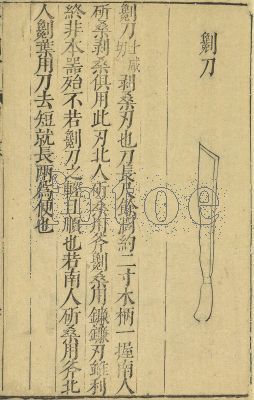 劖刀
劖刀士咸切剥桑刃也刀長尺餘濶約二寸木柄一握南人
斫桑剥桑俱用此刃北人斫桑用斧劖桑用鐮鐮刃雖利
終非本器殆不若劖刀之輕且順也若南人斫桑用斧北
人劖葉用刀去短就長兩爲便也